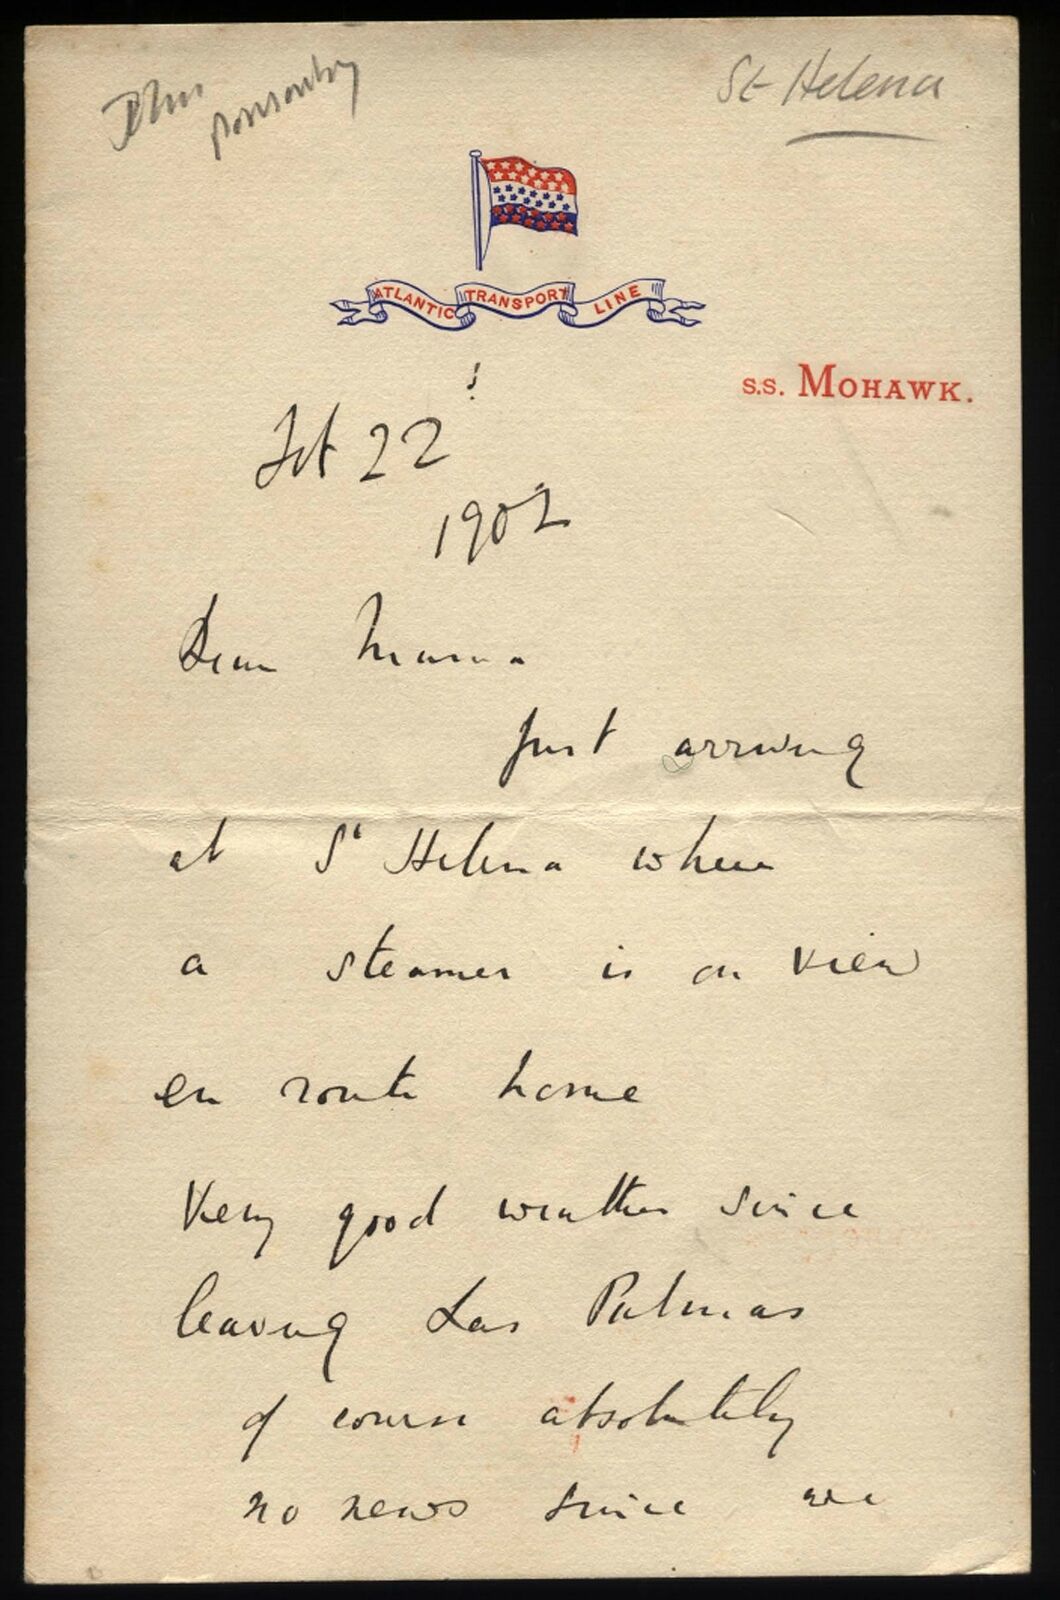 John
Ponsonby
St Helena
ATLANTIC TRANSPORT LINE
S.S. MOHAWK.
Feb 22
1902
Dear Mama
Just arriving
at St Helena where
a steamer is in view
en route home
Very good weather since
leaving Las Palmas
of course absolutely
no news since we